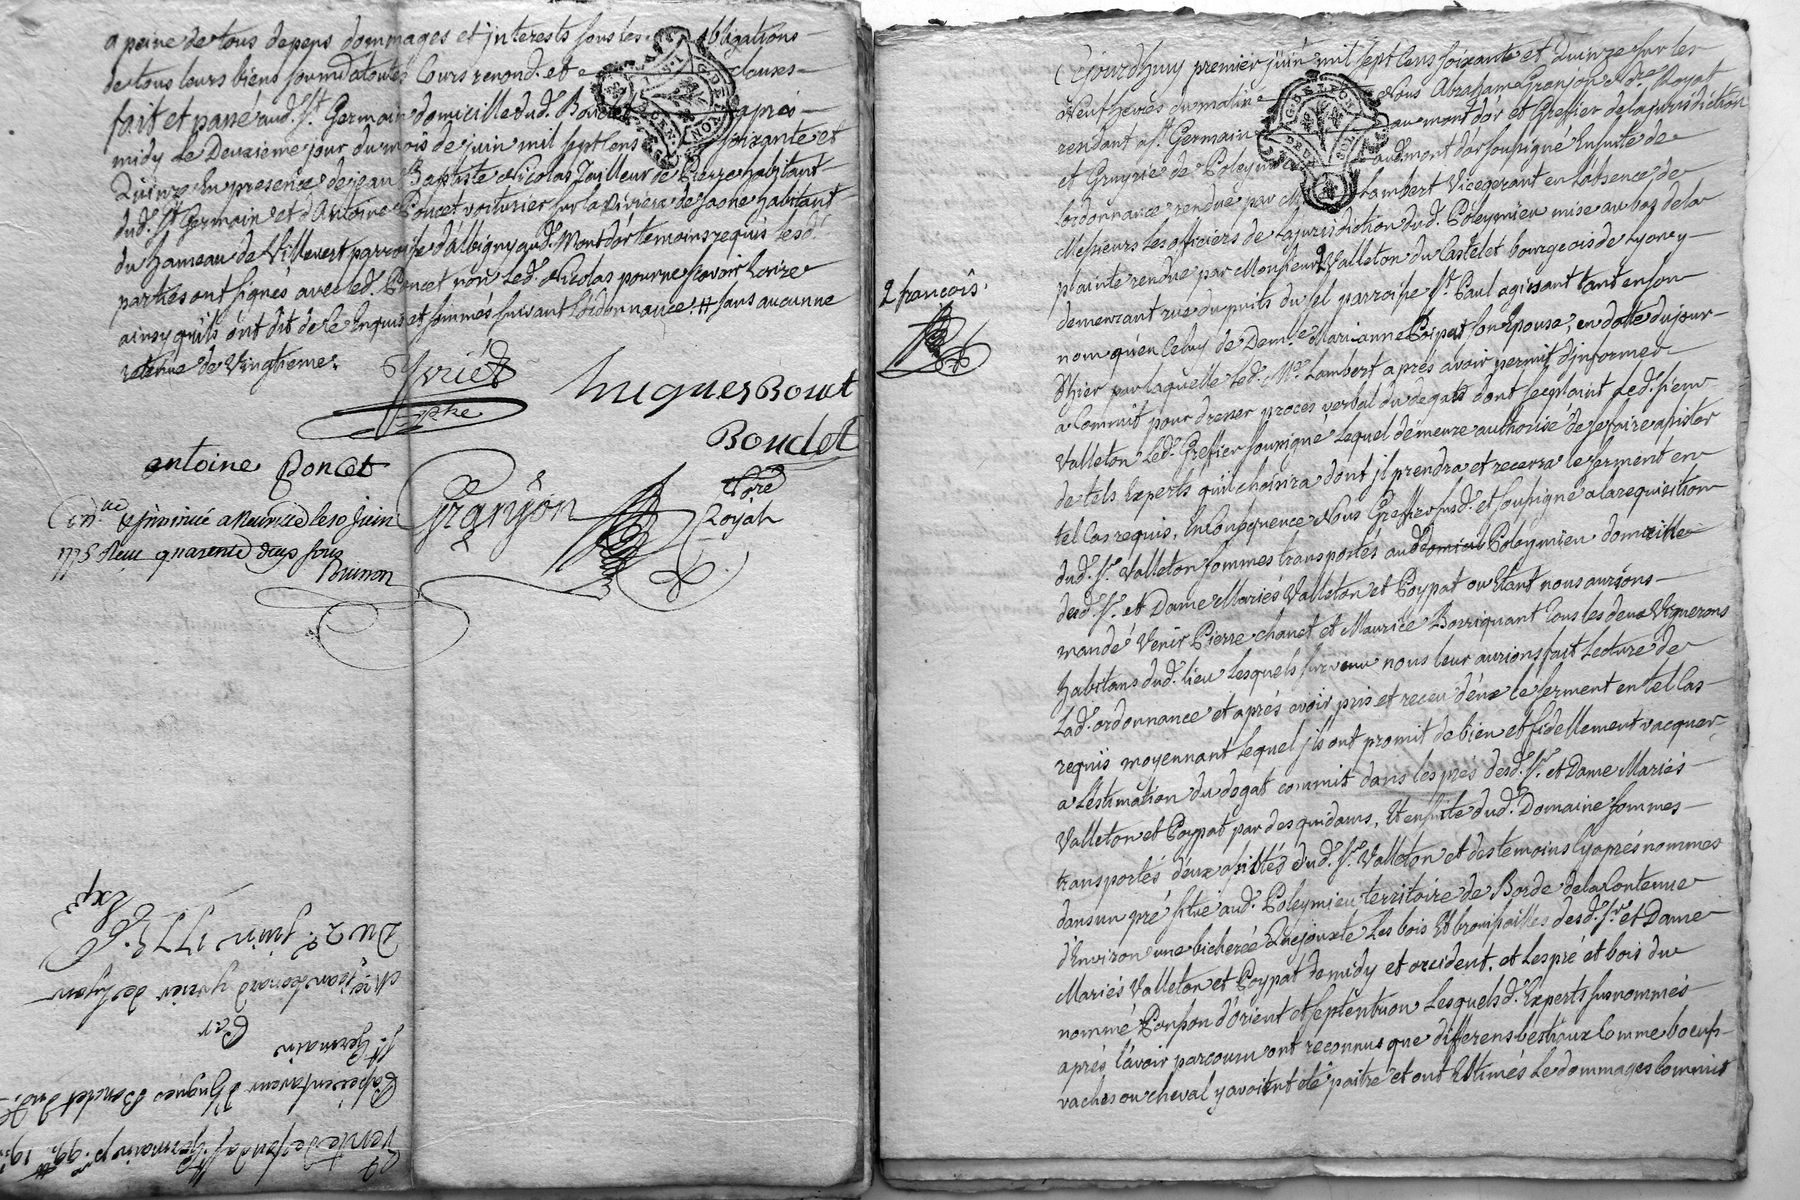 a peine de tous depens dommages et jnterests sous les obligations
de tous leurs biens soumis a toutes Cours renond. et clauses
fait et passé aud. St. Germain domicille dud. Boudet après
midy Le Deuxieme jour du mois de juin mil sept Cens soixante et
Quinze En presence de jean Baptiste Nicolas Tailleur de Pierre habitant
dud. St. Germain et d'Antoine Poncet voiturier sur la Riviere de Saone habitant
du hameau de Villevert parroisse d'albigny aud. Mont d'or temoins requis Lesd.
parties ont signés avec led. Poncet non Led. Nicolas pour ne sçavoir Ecrire
ainsy qu'ils ont dit de ce Enquis et sommés suivant L'ordonnance. # sans aucunne
retenue de Vingtieme.
Yvriéz
hugues Bouet
Boudet
antoine Poncet
Granjon
Nore
Royal
Con.lé à Neuville le 10 juin
1775 Reçu quarente deux sous
Brunon
Du 2e. juin 1775.
Exp
Me. jean Leonard yvrier de Lyon
Par
St. Germain
hugues Boudet dud.
Vente de fond a St. Germain
Cejourdhuy premier juin mil sept Cens soixante et Quinze sur les
Neuf heures du matin Nous Abraham Granjon Nore. Royal
rendant a St. Germain au mont d'or et Grefier de la jurisdiction
et Gruyrie de Poleymieu aud. mont d'or soussigné Ensuite de
Lordonnance rendue par Lambert Vicegerant en L'absence de
Messieurs Les officiers de la jurisdiction dud. Poleymieu mise au bas de la
plainte rendue par Monsieur Valleton du Castelet bourgeois de Lyon y
2 françois.
demeurant rue du puits du sel parroisse St. Paul agissant tant en son
nom qu'en Celuy de Demlle. Marianne Poypat son Epouse, en datte du jour
d'hier par laquelle Led. Me. Lambert après avoir permit d'jnformer
a Commit pour dresser procès verbal du degats dont se plaint Led. sieur
Valleton Led. Grefier soussigné Lequel demeure authorisé de se faire assister
de tels Experts qu'il choisira dont jl prendra et recevra le serment en
tel Cas requis, En Consequence Nous Grefier susd. et soussigné a la requisition
dud. Sr. Valleton sommes transportés aud. Poleymieu domicille
desd. Sr. et Dame Mariés Valleton et Poypat ou Etant nous aurions
mandé Venir Pierre chanet et Maurice Borriquant Tous les deux Vignerons
habitans dud. lieu Lesquels survenu nous leur aurions fait Lecture de
Lad. ordonnance et après avoir pris et receu d'eux le serment en tel Cas
requis moyennant Lequel jls ont promit de bien et fidellement vacquer
a L'estimation du degat commit dans les prés desd. Sr. et Dame Mariés
Valleton et Poypat par des quidams, Et ensuite dud. Domaine sommes
transportés d'eux assistés dud. Sr. Valleton et des temoins Cyaprés nommes
dans un pré situe aud. Poleymieu territoire de Borde de la Contenue
d'Environ une bicherée Qui jouxte Les bois Et broussailles desd. Sr. et Dame
Mariés Valleton et Poypat de midy et occident, et Les pré et bois du
nommé Ponson d'orient et septentrion Lesquels d. Experts susnommés
après L'avoir parcouru ont reconnus que differens bestiaux Comme boeufs
vaches ou cheval y avoient été paitre et ont Estimés Le dommages Commit